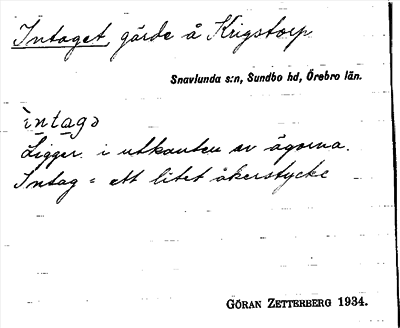 Intaget, gärde å Krigstorp
Snavlunda s:n, Sundbo hd, Örebro län.
ìntagə
Ligger i utkanten av ägorna.
Intag = ett litet åkerstycke
GÖRAN ZETTERBERG 1934.